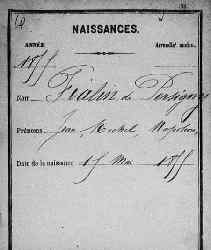 NAISSANCES.
ANNÉE
1855
Nom Fialin de Persigny
Prénoms Jean Michel Napoléon
Date de la naissance 15 Mai 1855